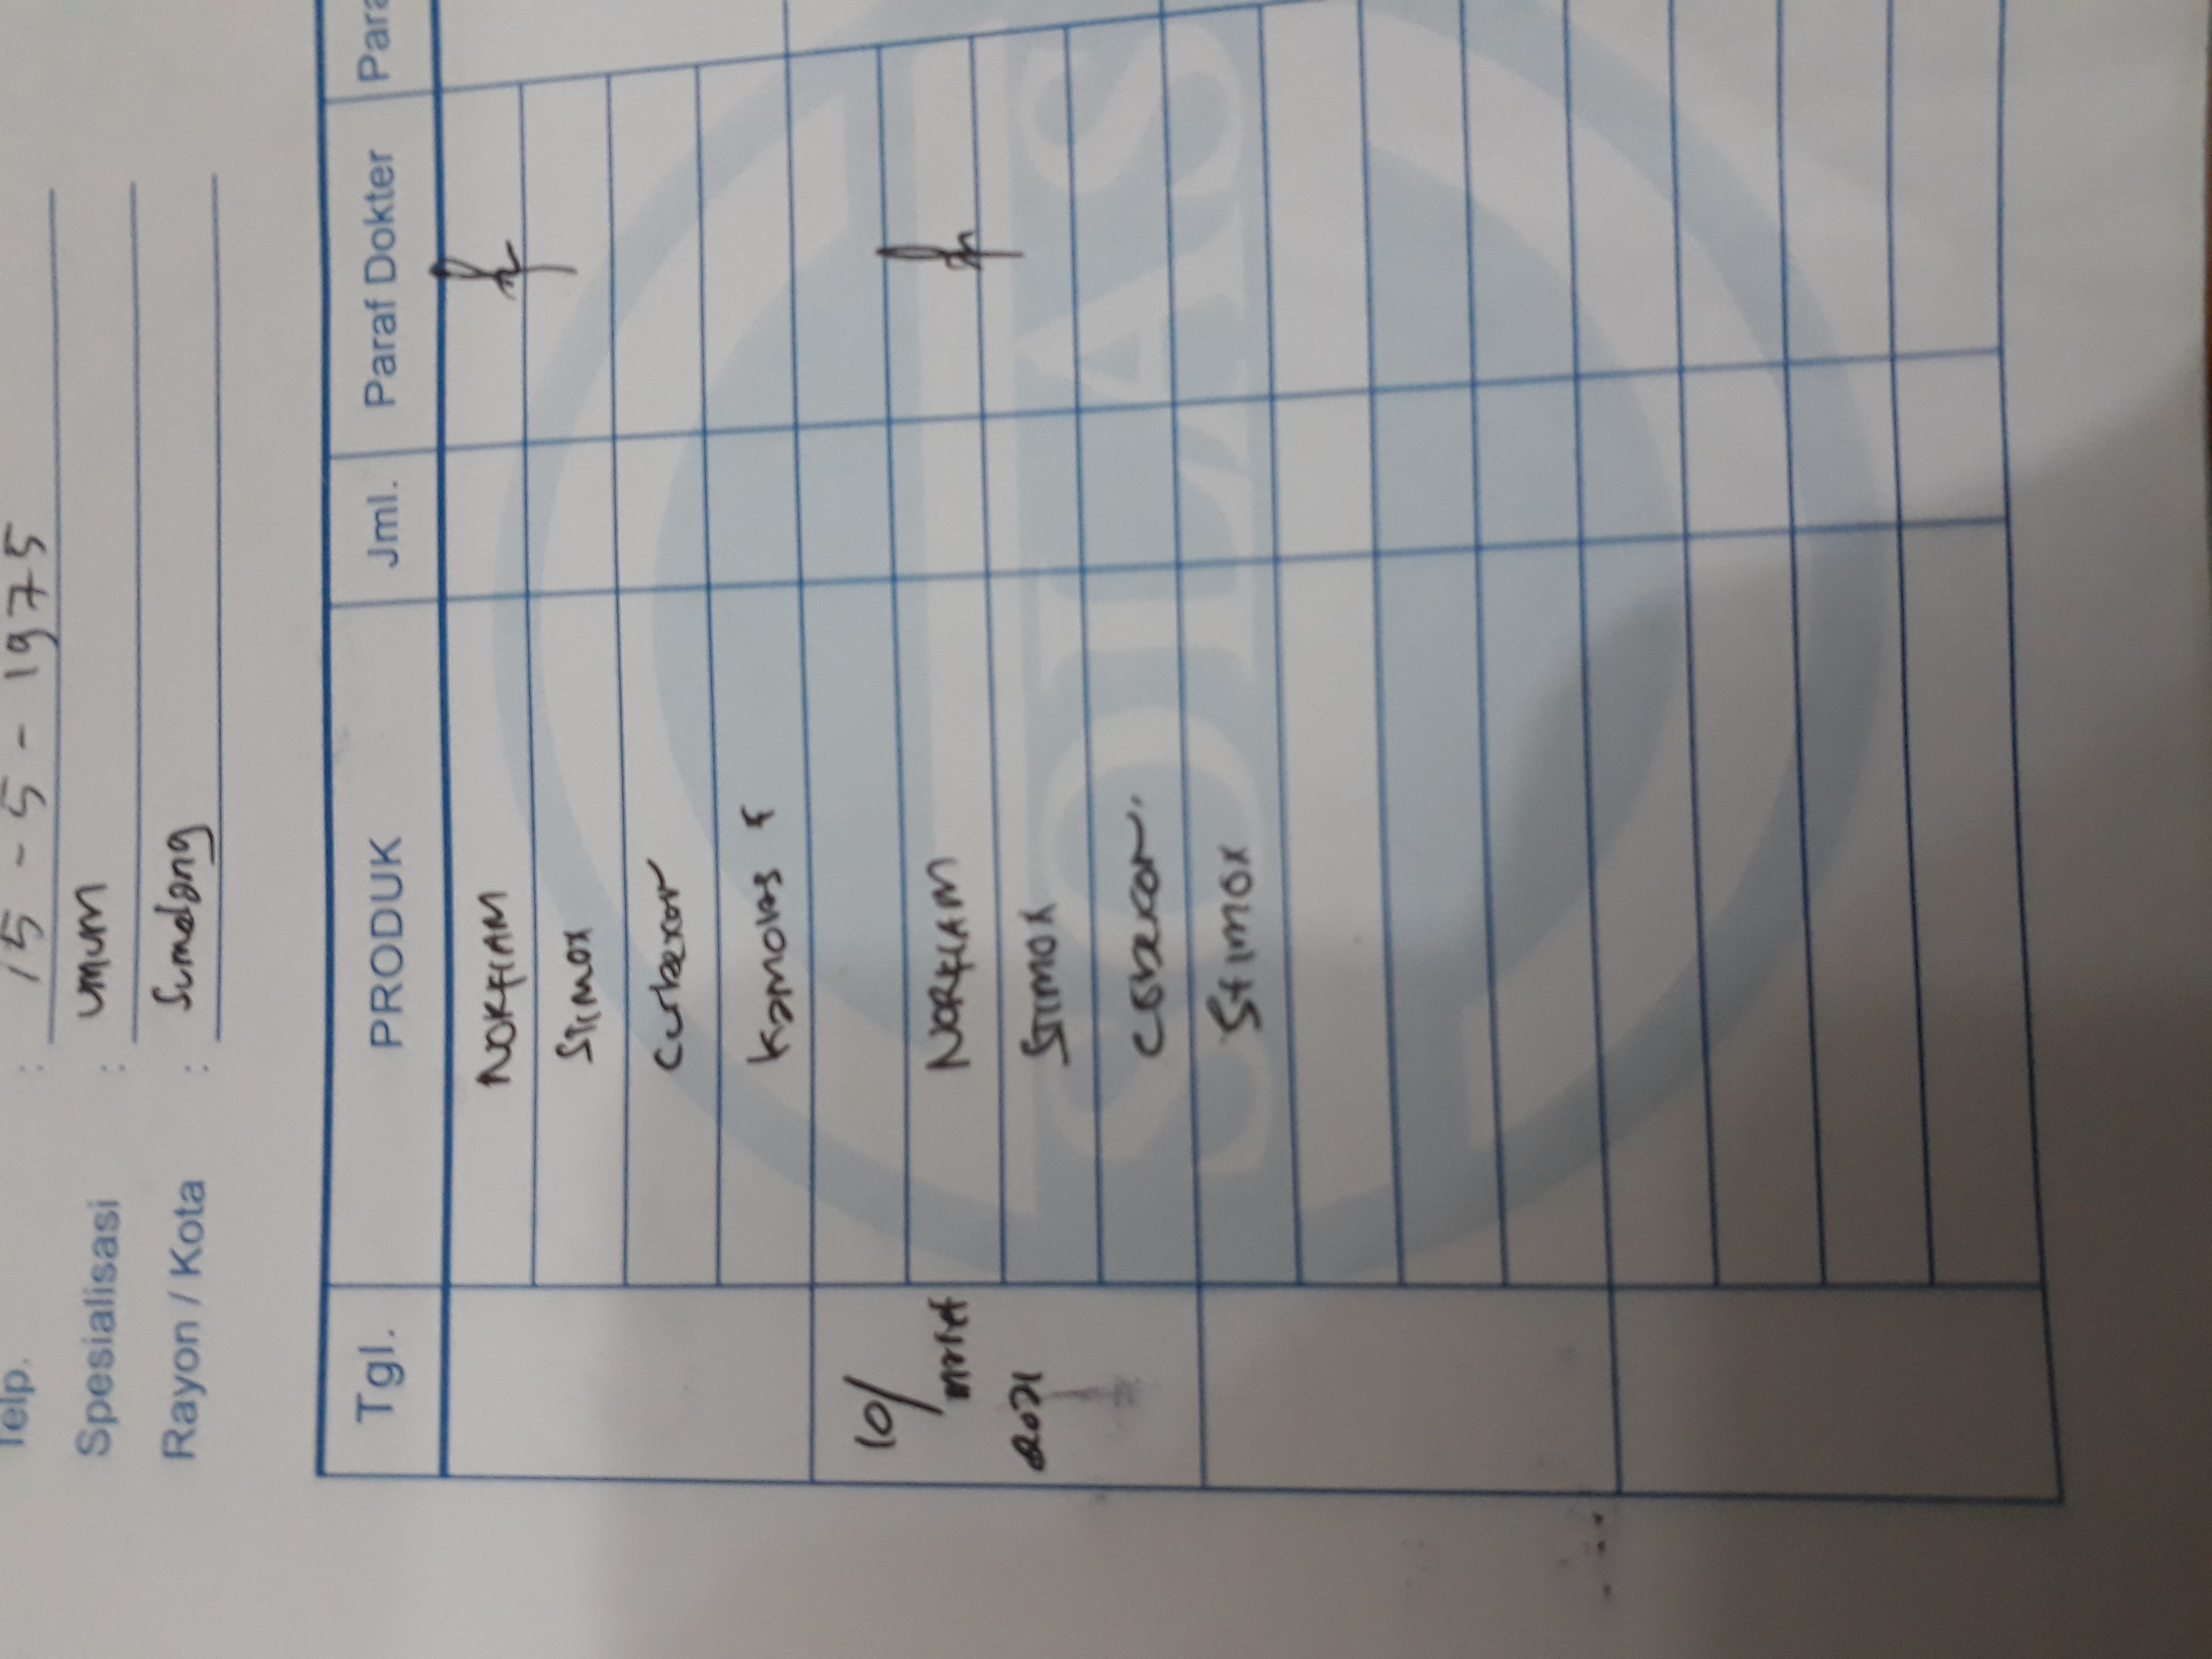 Telp. : 15 - 5 - 1975
Spesialisasi : umum
Rayon / Kota : Sumedang
Tgl. PRODUK Jml. Paraf Dokter Para
NORFLAM
Stimox
Curbexon
Kamolas F
10/
maret NORFLAM
2021 Stimox
Curbexon
Stimox
SOLAS